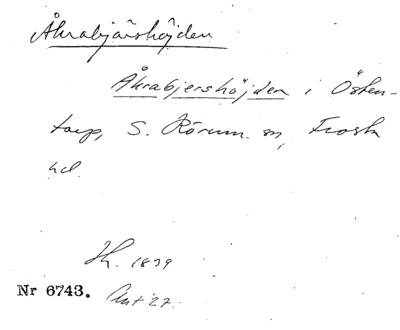 Åkrabjärshöjden
Åkrabjershöjden i Östen-
torp, S. Rörum sn, Frosta
hd.
Hh. 1839
Nr 6743. Akt 27.